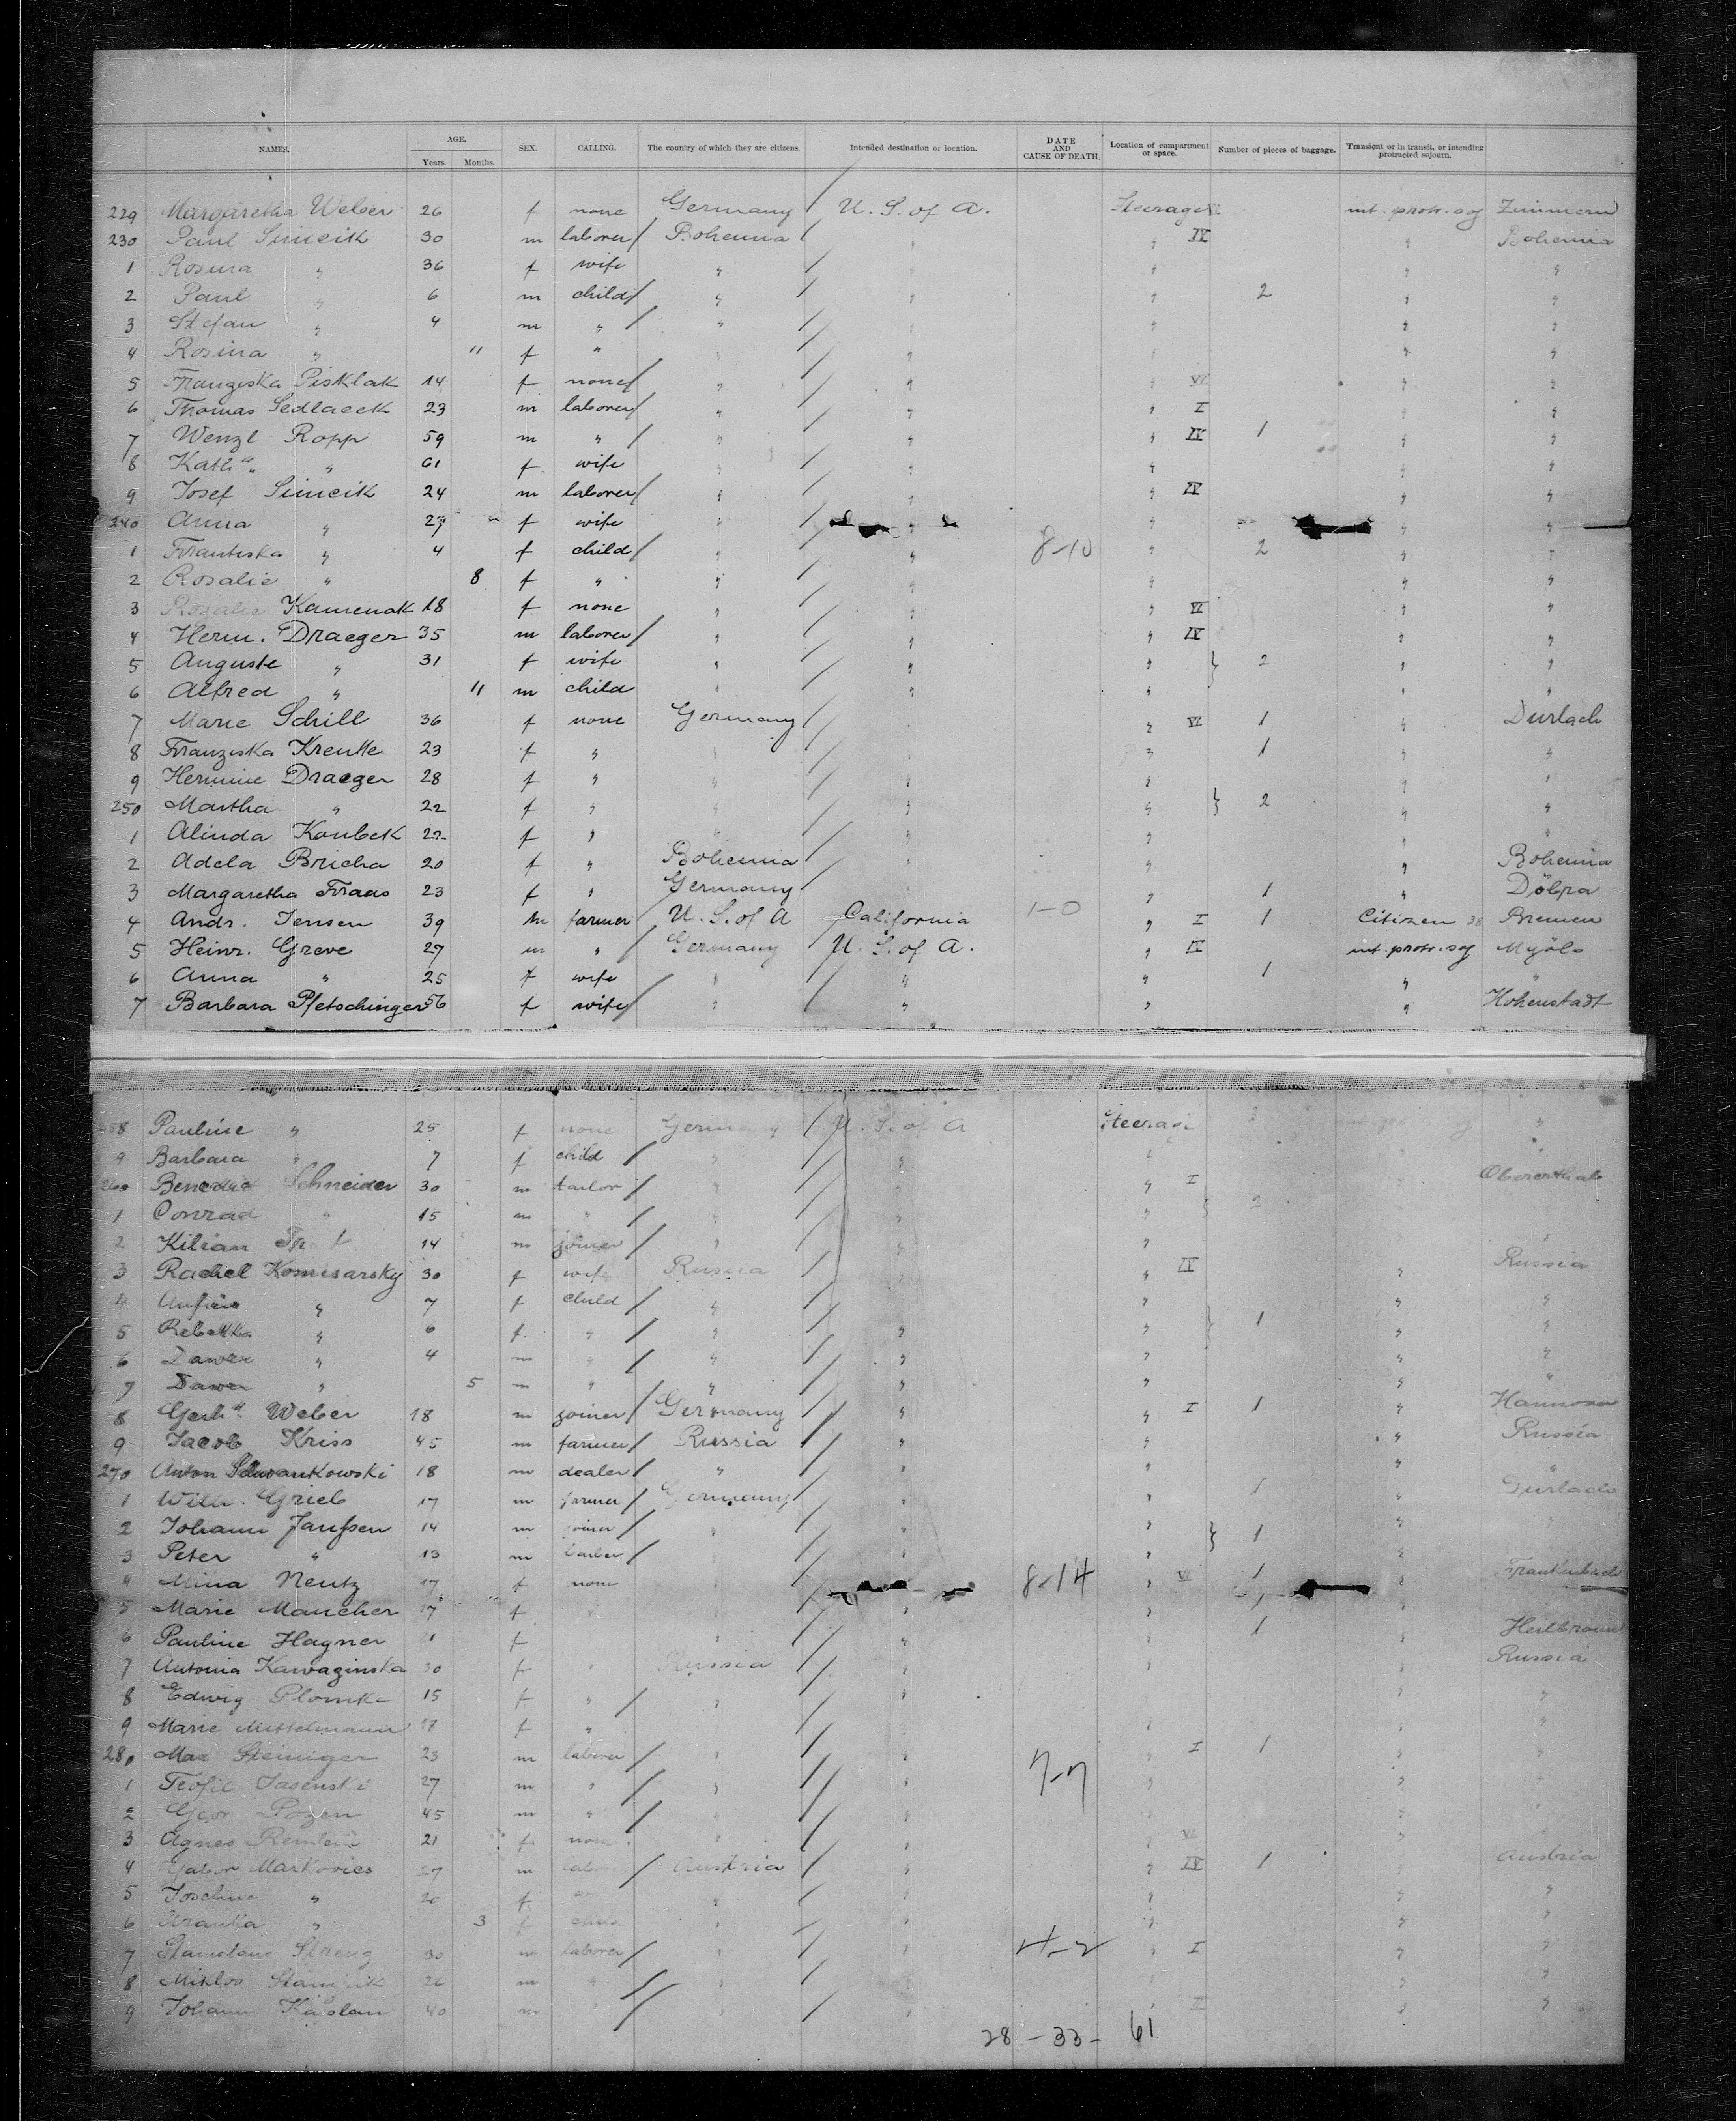 NAMES. AGE. Years. Months. SEX. CALLING. The country of which they are citizens. Intended destination or location. DATE AND CAUSE OF DEATH. Location of compartment or space. Number of pieces of baggage. Transient or in transit, or intending protracted sojourn.
229 Margaretha Weber 26 f none Germany U. S. of A. Steerage int. protr. soj Zimmern
230 Paul Simcik 30 m laborer Bohemia IV Bohemia
1 Rosina " 36 f wife " " " " "
2 Paul " 6 m child " " " 2 " "
3 Stefan " 4 m " " " " " "
4 Rosina " 11 f " " " " " "
5 Franziska Pisklak 14 f none " " " VI " "
6 Thomas Sedlacek 23 m laborer " " " I " "
7 Wenzl Ropp 59 m " " " " IV 1 " "
8 Kath. " 61 f wife " " " " "
9 Josef Simcik 24 m laborer " " " IV " "
240 Anna " 27 f wife " " " " "
1 Frantiska " 4 f child " " 8-10 " 2 " "
2 Rosalie " 8 f " " " " " "
3 Rosalie Kamenak 18 f none " " " VI " "
4 Herm. Draeger 35 m laborer " " " IV " "
5 Auguste " 31 f wife " " " 2 " "
6 Alfred " 11 m child " " " " "
7 Marie Schill 36 f none Germany " " VI 1 " Durlach
8 Franziska Kreutle 23 f " " " " 1 " "
9 Hermine Draeger 28 f " " " " " "
250 Martha " 22 f " " " " 2 " "
1 Alinda Koubek 22 f " " " " " "
2 Adela Bricha 20 f " Bohemia " " " Bohemia
3 Margaretha Fraas 23 f " Germany " " 1 " Dölpa
4 Andr. Jensen 39 m farmer U. S. of A California 1-0 " I 1 Citizen 38 Bremen
5 Heinr. Greve 27 m " Germany U. S. of A. " IV int. protr. soj Myöls
6 Anna " 25 f wife " " " 1 " "
7 Barbara Pfetschinger 56 f wife " " " " Hohenstadt
258 Pauline " 25 f none Germany U. S. of A Steerage 2 "
9 Barbara " 7 f child " " " "
260 Benedict Schneider 30 m tailor " " " I
1 Conrad " 15 m " " " " 2
2 Kilian 14 m joiner " "
3 Rachel Komisarsky 30 f wife Russia " IV " Russia
4 " 7 f child " " " "
5 Rebekka " 6 f " " " " 1 " "
6 " 4 m " " " " " "
7 " 5 m " " " " " "
8 Gerh. Weber 18 m joiner Germany " " I 1 " Hannover
9 Jacob Kriss 45 m farmer Russia " " " Russia
270 Anton Schwankowski 18 m dealer " " " " "
1 Wilh. Grieb 17 m farmer Germany " " 1 " Durlach
2 Johann Janßen 14 m joiner " " " 1 "
3 Peter " 13 m " " "
4 Mina Nentz 17 f none " 8-14 " VI 1 " Frankenbach
5 Marie Maucher 17 f " " "
6 Pauline Hagner f " " " 1 " Heilbronn
7 Antonia Kawazinska 30 f " Russia " " Russia
8 Edwig Plomke 15 f " " " " "
9 Marie Mittelmann f "
280 Max Steiniger 23 m laborer " " " I 1 "
1 Teofil Jasenski 27 m " " " 7-7 " "
2 Pozen 45 m " " " "
3 Agnes 21 f none " " VI "
4 Gabor Markovics 27 m Austria " " IV 1 " Austria
5 " 20 f " " " " "
6 " 3 f " " " " "
7 Streng 30 m laborer " " 4-2 " I " "
8 Miklos 26 m " " " " "
9 Johann 40 m " " " "
28 - 33 - 61